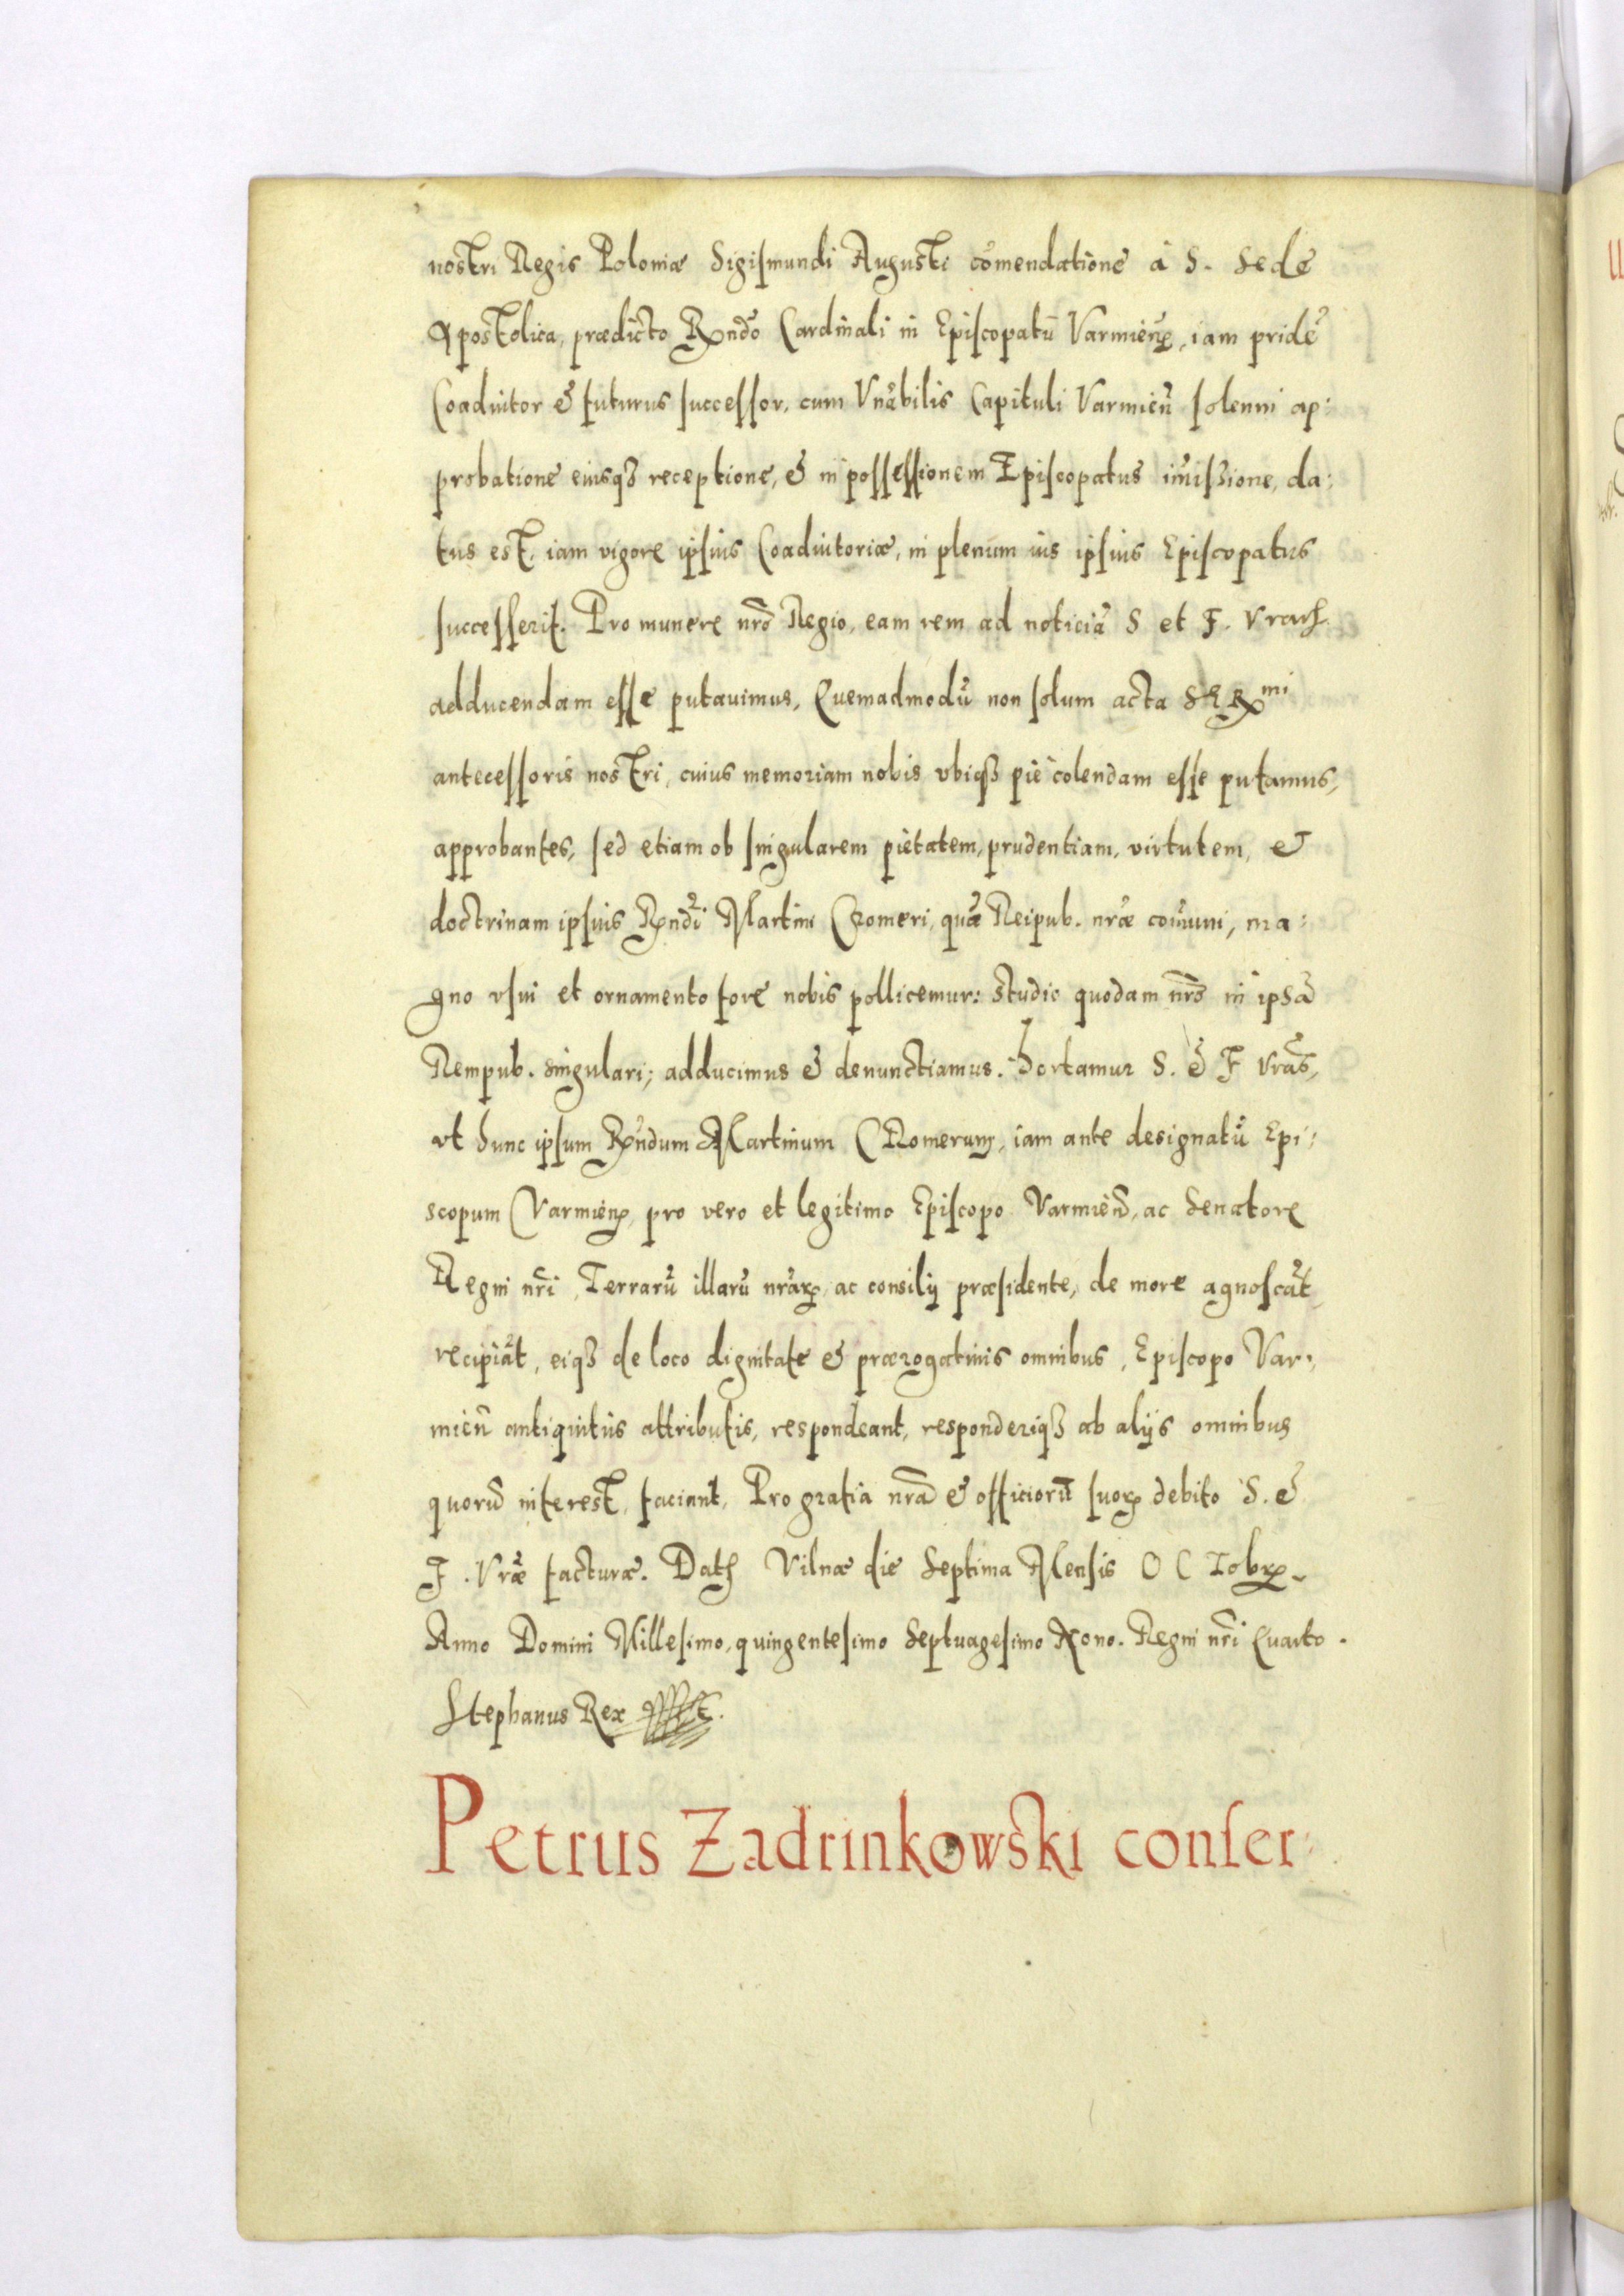 nostri Regis Poloniæ Sigismundi Augusti cõmendatione à S. Sede
Apostolica, prædicto Rndo Cardinali in Episcopatũ Varmieñ, iam pridẽ
Coadiutor & futurus successor, cum Vnãbilis Capituli Varmieñ solenni ap:
probatione eiusq3 receptione, & in possessionem Episcopatus imissione, da:
tus est, iam vigore ipsius Coadiutoriæ, in plenum ius ipsius Episcopatus
successerit. Pro munere nrõ Regio, eam rem ad noticiã S et F. Vrar
adducendam esse putauimus, Quemadmodũ non solum acta SeRmi
antecessoris nostri, cuius memoriam nobis vbiq3 piè colendam esse putamus,
approbantes, sed etiam ob singularem pietatem, prudentiam, virtutem, &
doctrinam ipsius Rndi Martini Cromeri, quã Reipub. nræ comuni, ma:
gno vsui et ornamento fore nobis pollicemur: studio quodam nrõ in ipsã
Rempub. singulari; adducimus & denunctiamus. Hortamur S. & F Vrãs,
vt hunc ipsum Rndum Martinum CRomerum, iam ante designatũ Epi:
scopum Varmieñ, pro vero et legitimo Episcopo Varmieñ, ac Senatore
Regni nri, Terrarũ illarũ nrãr, ac consilij præsidente, de more agnoscãt
recipiãt, eiq3 de loco dignitate & prærogatiuis omnibus, Episcopo Var:
mieñ antiquitùs attributis, respondeant, responderiq3 ab alijs omnibus
quorũ interest, faciant, Pro gratia nrã & officiorũ suor debito S. &
F. Vræ facturæ. Dat Vilnæ die Septima Mensis OCTobr
Anno Domini Millesimo, quingentesimo Septuagesimo Nono. Regni nri Quarto.
Stephanus Rex
Petrus Zadrinkowski conser: